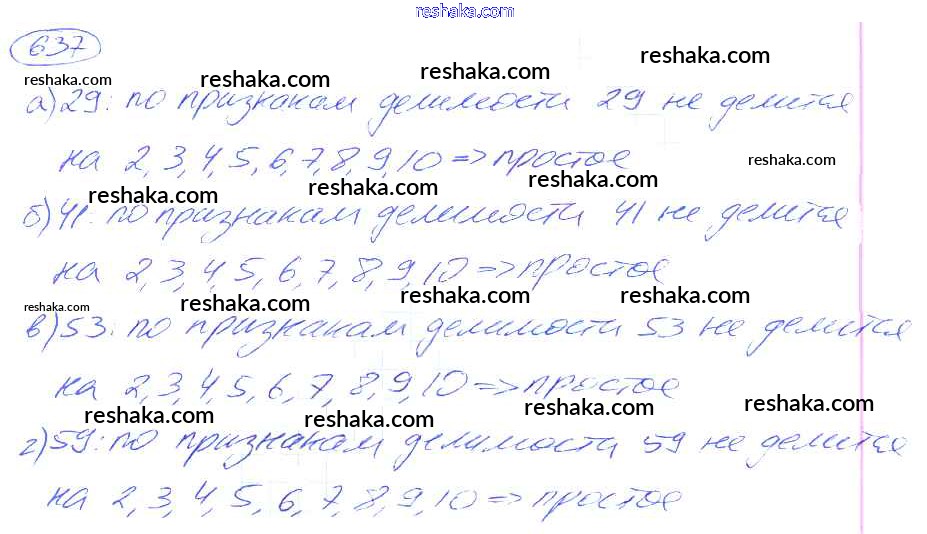 reshaka.com
637
reshaka.com reshaka.com reshaka.com reshaka.com
а) 29: по признакам делимости 29 не делится
на 2, 3, 4, 5, 6, 7, 8, 9, 10 => простое
reshaka.com
reshaka.com reshaka.com reshaka.com
б) 41: по признакам делимости 41 не делится
на 2, 3, 4, 5, 6, 7, 8, 9, 10 => простое
reshaka.com reshaka.com reshaka.com reshaka.com
в) 53: по признакам делимости 53 не делится
на 2, 3, 4, 5, 6, 7, 8, 9, 10 => простое
reshaka.com reshaka.com reshaka.com reshaka.com
г) 59: по признакам делимости 59 не делится
на 2, 3, 4, 5, 6, 7, 8, 9, 10 => простое